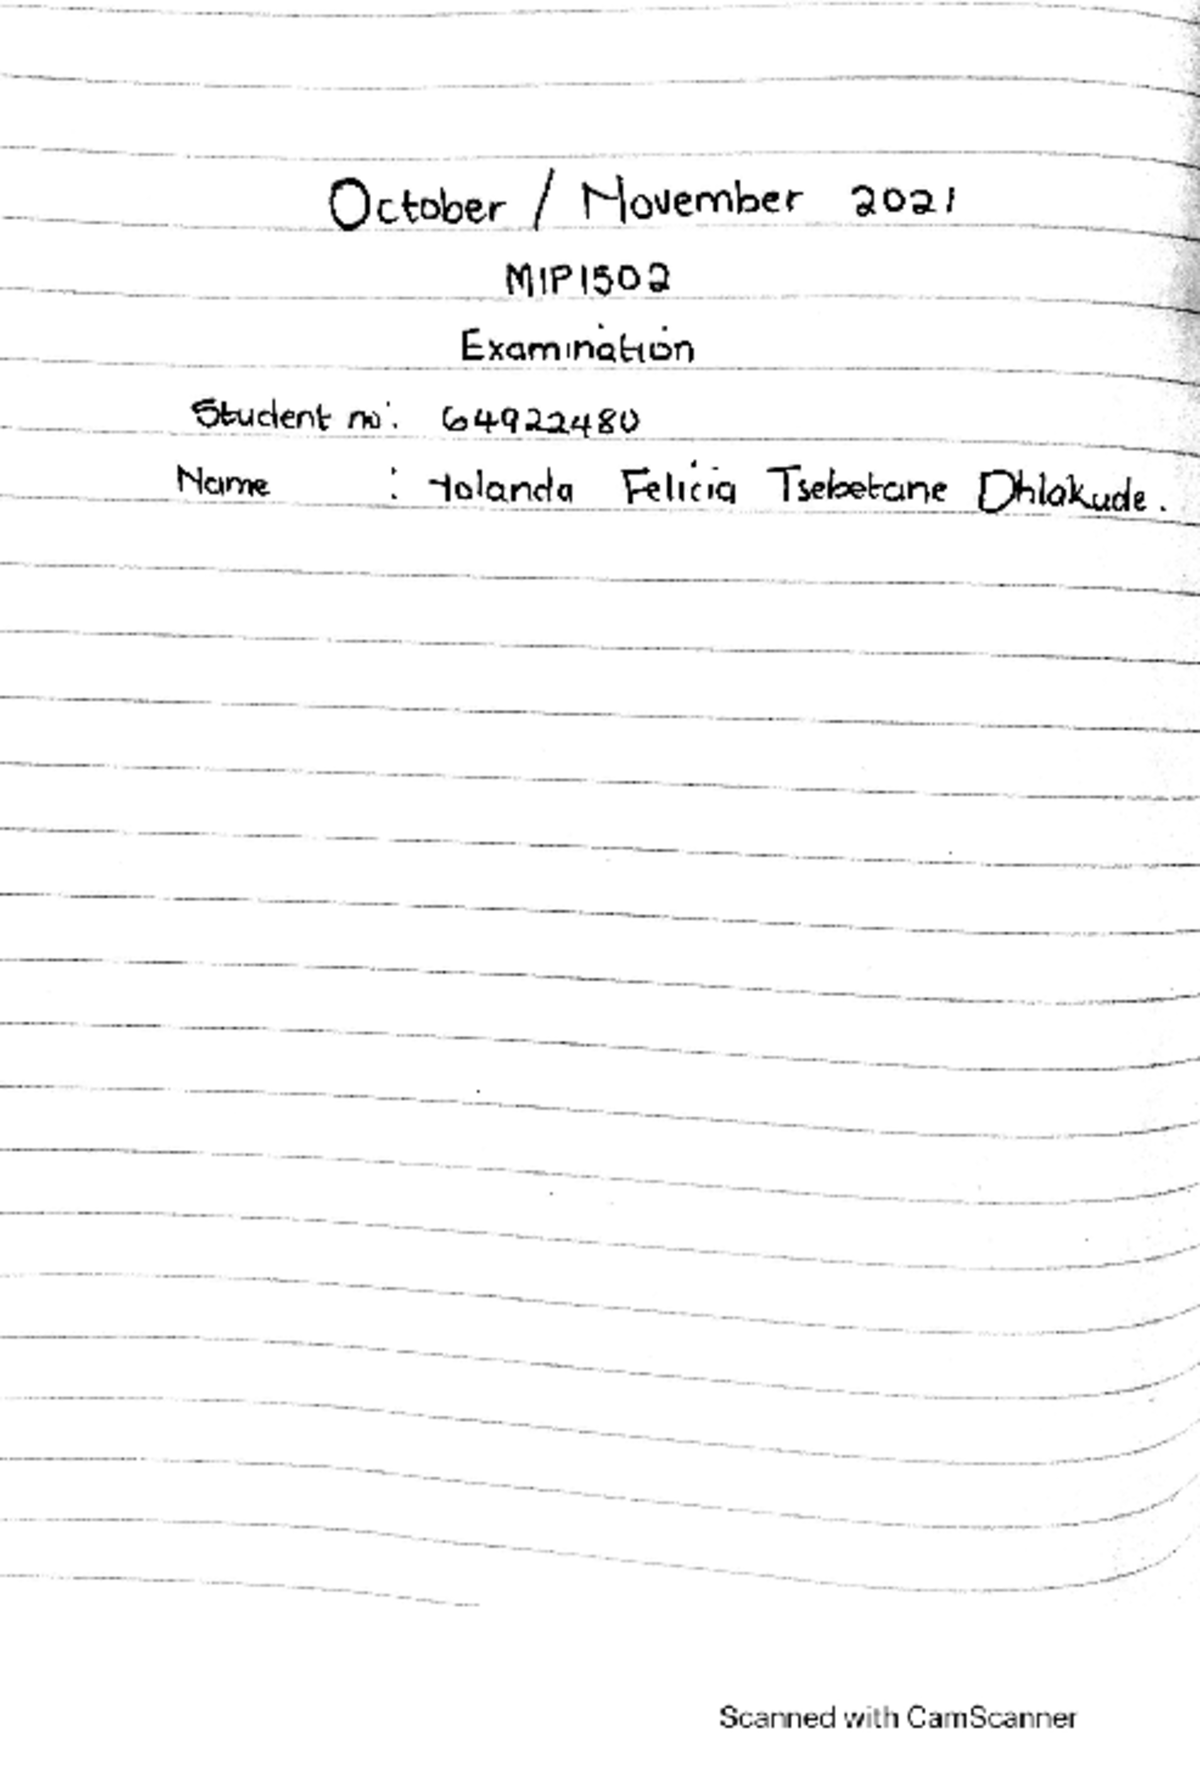 October / November 2021
MIP1502
Examination
Student no: 64922480
Name : Yolanda Felicia Tsebetane Dhlakude.
Scanned with CamScanner